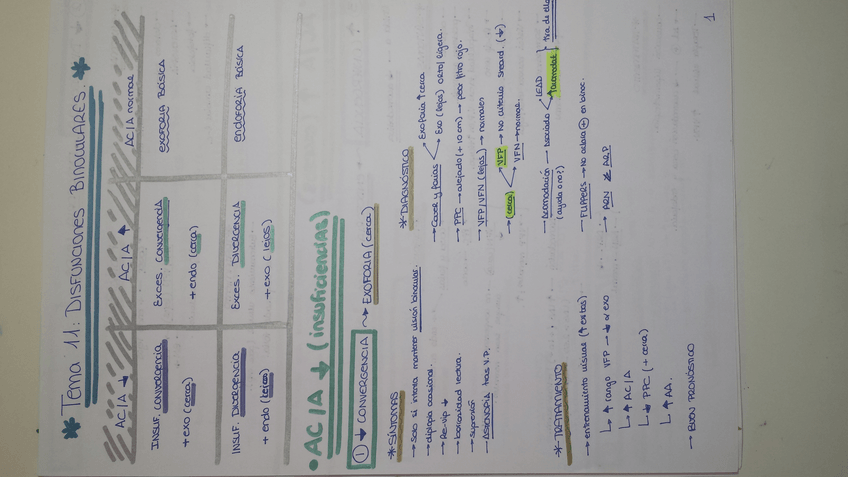 * Tema 11: DISFUNCIONES BINOCULARES. *
AC/A ↓ AC/A ↑ AC/A normal
INSUF. CONVERGENCIA Exces. CONVERGENCIA EXOFORIA BÁSICA
+ exo (cerca) + endo (cerca)
INSUF. DIVERGENCIA Exces. DIVERGENCIA ENDOFORIA BÁSICA
+ endo (lejos) + exo (lejos)
• AC/A ↓ (insuficiencias)
① ↓ CONVERGENCIA → EXOFORIA (cerca)
* SÍNTOMAS
→ Solo si intenta mantener visión binocular.
→ diplopía ocasional.
→ Re-Vip ↓
→ borrosidad lectura.
→ supresión
→ ASTENOPÍA tras V.P.
* DIAGNÓSTICO
→ Cover y forias Exoforia ↑ cerca
Exo (lejos) orto/ligera.
→ PPC → alejado (+ 10 cm) → peor filtro rojo.
→ VFP/VFN (lejos) → normales
→ (cerca) VFP → No criterio Sheard. (↓)
VFN → normal.
→ Acomodación → Asociado LEAD
↑acomodat. } tira de ella
(ayuda o no?)
→ FLIPPERS → No aclara ⊕ en binoc.
→ ARN ARP
* TRATAMIENTO
→ entrenamiento visual (↑ éxitos)
↳ ↑ rango VFP → ↓ exo
↳ ↑ AC/A
↳ ↓ PPC (+ cerca)
↳ ↑ AA.
→ BUEN PRONÓSTICO
1